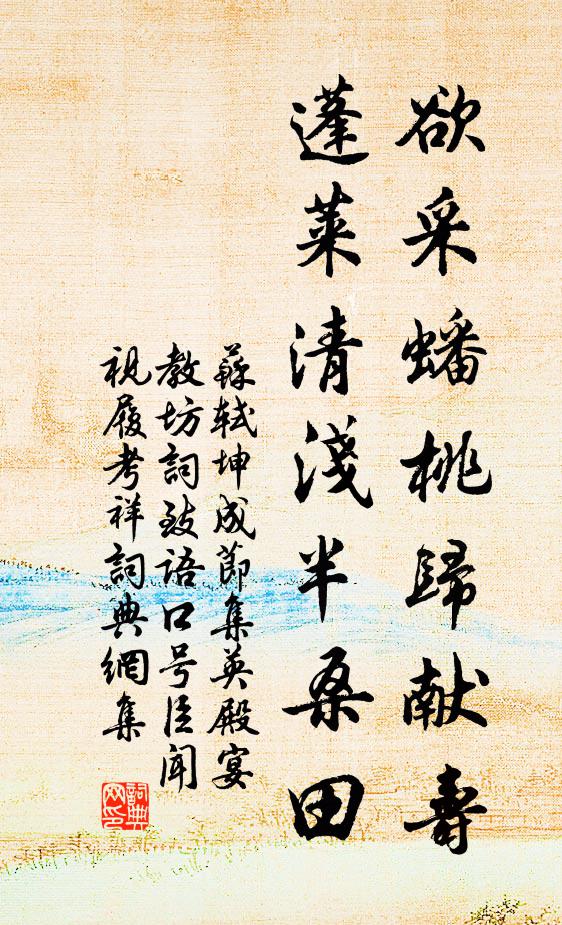 欲采蟠桃歸献壽
蓬莱清淺半桑田
蘇軾坤成節集英殿宴
教坊詞致語口号臣聞
視履考祥詞典網集
詞典
网印